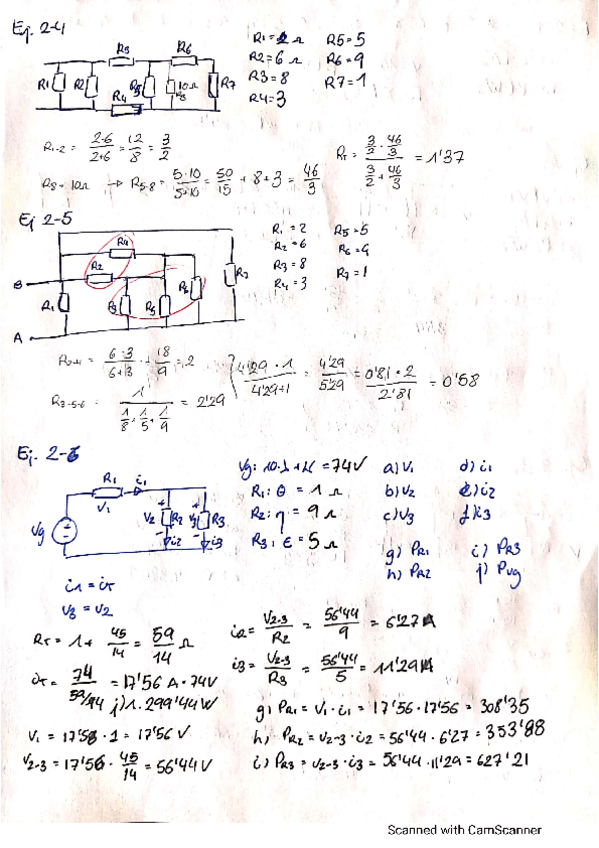 Ej. 2-4
R3 R6
R1 R2 R5 10Ω R8 R7
R4
R1=2Ω R5=5
R2=6Ω R6=9
R3=8 R7=1
R4=3
R1-2 = 2·6/2+6 = 12/8 = 3/2
R8=10Ω → R5-8 = 5·10/5+10 = 50/15 + 8+3 = 46/3
RT = 3/2 · 46/3 / 3/2 + 46/3 = 1'37
Ej 2-5
R4
R2
B
R1 R3 R5 R6
A
R1=2 R5=5
R2=6 R6=9
R3=8 R7=1
R4=3
R2-4 = 6·3/6+3 = 18/9 = 2
R3-5-6 = 1/1/8+1/5+1/9 = 2'29
4'29·1/4'29+1 = 4'29/5'29 = 0'81·2/2'81 = 0'58
R1 i1
V1
Vg V2 R2 R3
i2 i3
R1: θ = 1Ω
R2: η = 9Ω
R3: ε = 5Ω
a) V1 d) i1
b) V2 e) i2
c) V3 f) i3
g) PR1 i) PR3
h) PR2 j) PVg
i1 = iT
V3 = V2
RT = 1+ 45/14 = 59/14 Ω
iT = 74/59/14 = 17'56 A · 74V
j) 1.299'44W
V1 = 17'56 · 1 = 17'56 V
V2-3 = 17'56 · 45/14 = 56'44 V
i2 = V2-3/R2 = 56'44/9 = 6'27A
i3 = V2-3/R3 = 56'44/5 = 11'29A
g) PR1 = V1 · i1 = 17'56 · 17'56 = 308'35
h) PR2 = V2-3 · i2 = 56'44 · 6'27 = 353'88
i) PR3 = V2-3 · i3 = 56'44 · 11'29 = 627'21
Scanned with CamScanner